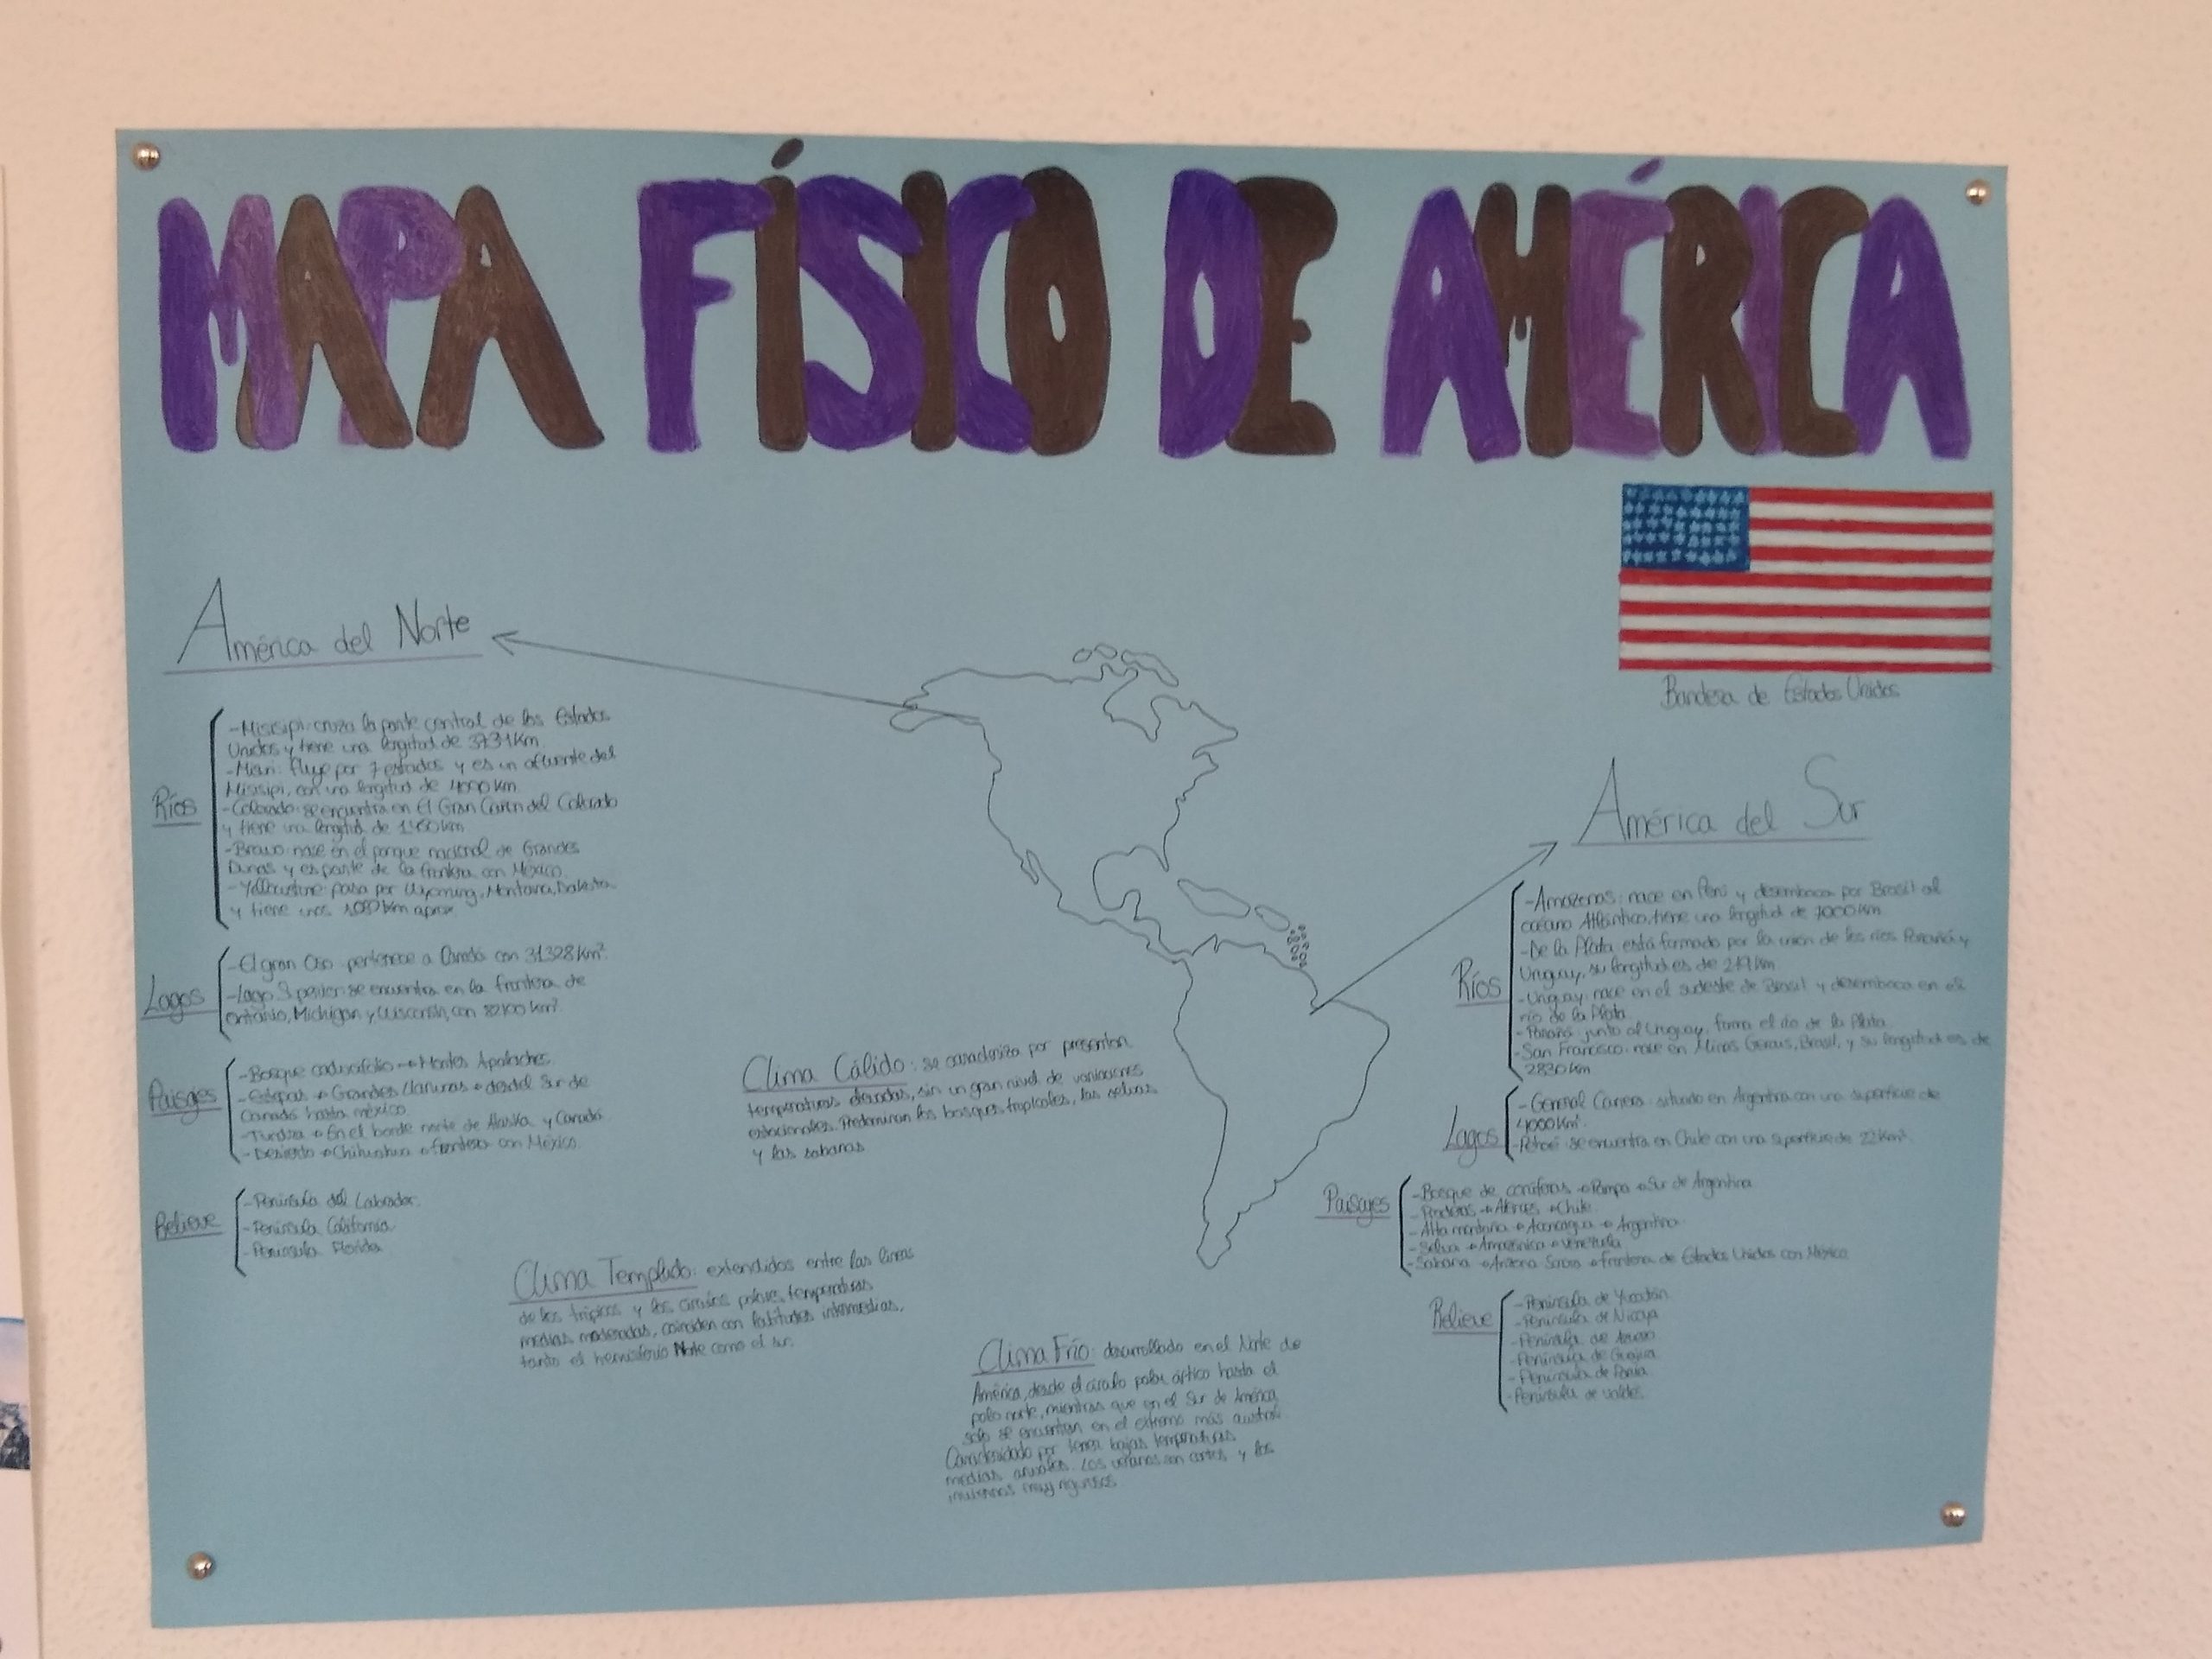 MAPA FÍSICO DE AMÉRICA
Bandera de Estados Unidos
América del Norte
Ríos
-Misisipi: cruza la parte central de los Estados
Unidos y tiene una longitud de 3734Km
-Misuri: fluye por 7 estados y es un afluente del
Misisipi, con una longitud de 4000 km
-Colorado: se encuentra en El Gran Cañon del Colorado
y tiene una longitud de
-Bravo: nace en el parque nacional de Grandes
Dunas y es parte de la frontera con México
-Yellowstone: pasa por Wyoming, Montana, Dakota
y tiene unos km aprox.
Lagos
-El gran Oso: pertenece a Canadá con 31328 Km².
-Lago Superior: se encuentra en la frontera de
Ontario, Michigan y Wisconsin, con 82100 km².
Paisajes
-Bosque caducifolio → Montes Apalaches
-Estepas → Grandes llanuras → desde Sur de
Canadá hasta méxico
-Tundra → En el borde norte de Alaska y Canadá
-Desierto → Chihuahua → frontera con México.
Relieve
-Península del Labrador.
-Península California
-Península Florida
Clima Cálido: se caracteriza por presentar
temperaturas elevadas, sin un gran nivel de variaciones
estacionales. Predominan los bosques tropicales, las selvas
y las sabanas
Clima Templado: extendidos entre las líneas
de los trópicos y los círculos polares, temperaturas
medias moderadas, coinciden con latitudes intermedias,
tanto el hemisferio Norte como el sur.
Clima Frío: desarrollado en el Norte de
América, desde el círculo polar ártico hasta el
polo norte, mientras que en el Sur de América,
solo se encuentran en el extremo más austral
Caracterizado por tener bajas temperaturas
medias anuales. Los veranos son cortos y los
inviernos muy rigurosos
América del Sur
Ríos
-Amazonas: nace en Perú y desemboca por Brasil al
océano Atlántico, tiene una longitud de 7000 Km
-De la Plata: está formado por la unión de los ríos Paraná y
Uruguay, su longitud es de
-Uruguay: nace en el sudeste de Brasil y desemboca en el
río de la Plata
-Paraná: junto al Uruguay, forma el río de la Plata
-San Francisco: nace en Minas Gerais, Brasil, y su longitud es de
2830 km
Lagos
-General Carrera: situado en Argentina con una superficie de
4000 Km².
se encuentra en Chile con una superficie de 22 km².
Paisajes
-Bosque de coníferas → Pampa → Sur de Argentina
-Praderas → → Chile
-Alta montaña → Aconcagua → Argentina
-Selva → Amazónica → Venezuela
-Sabana → Arizona → frontera de Estados Unidos con México
Relieve
-Península de Yucatán
-Península de Nicoya
-Península de
-Península de Guajira
-Península de Paria
-Península de Valdés